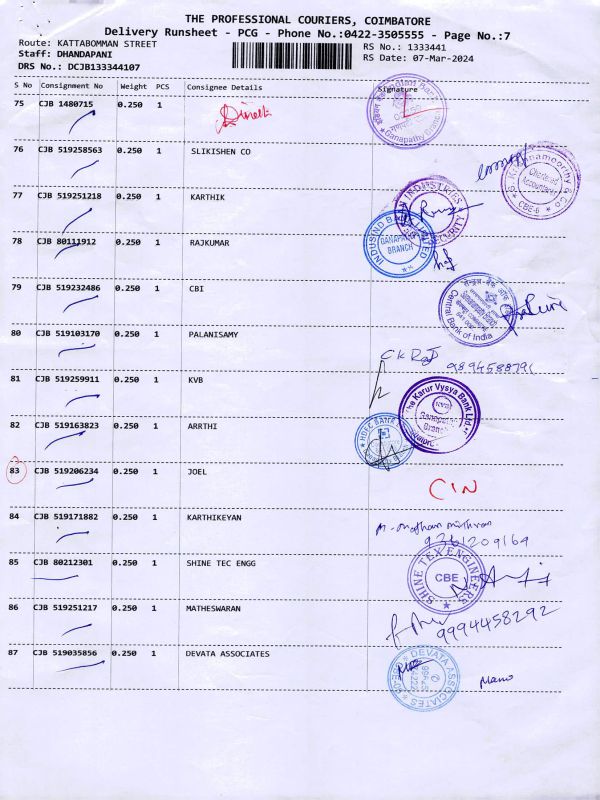 THE PROFESSIONAL COURIERS, COIMBATORE
Delivery Runsheet - PCG - Phone No.:0422-3505555 - Page No.:7
Route: KATTABOMMAN STREET
RS No.: 1333441
Staff: DHANDAPANI
RS Date: 07-Mar-2024
DRS No.: DCJB133344107
S No Consignment No Weight PCS Consignee Details Signature
75 CJB 1480715 0.250 1
Ganapathy Branch
76 CJB 519258563 0.250 1 SLIKISHEN CO
Chartered Accountant
CBE-6
77 CJB 519251218 0.250 1 KARTHIK
INDUSTRIES
SECURITY
78 CJB 80111912 0.250 1 RAJKUMAR
INDUSIND BANK LIMITED
GANAPATHY BRANCH
79 CJB 519232486 0.250 1 CBI
Central Bank of India
80 CJB 519103170 0.250 1 PALANISAMY
CK Raj
9894588791
81 CJB 519259911 0.250 1 KVB
The Karur Vysya Bank Ltd
KVB
Ganapathy Branch
82 CJB 519163823 0.250 1 ARRTHI
HDFC BANK
83 CJB 519206234 0.250 1 JOEL
CIN
84 CJB 519171882 0.250 1 KARTHIKEYAN
9361209164
85 CJB 80212301 0.250 1 SHINE TEC ENGG
SHINE TEX ENGINEERS
CBE
86 CJB 519251217 0.250 1 MATHESWARAN
9994458292
87 CJB 519035856 0.250 1 DEVATA ASSOCIATES
DEVATA ASSOCIATES
Mano